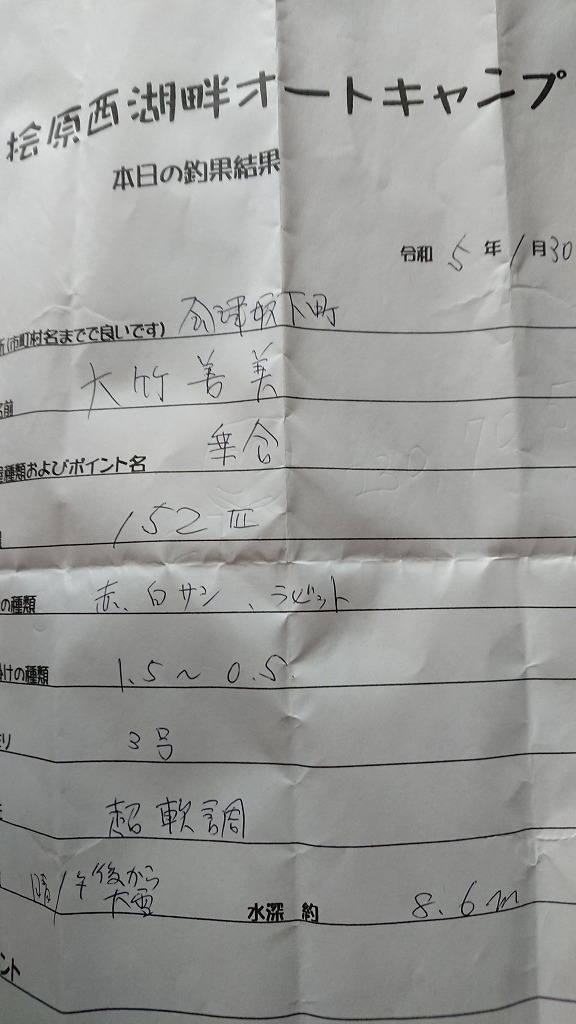 桧原西湖畔オートキャンプ
本日の釣果結果
令和 5 年 1 月 30
所(市町村名までで良いです) 会津坂下町
名前 大竹 善美
種類およびポイント名 乗合
152 匹
の種類 赤、白サン、ラビット
掛けの種類 1.5～0.5
3号
超軟調
晴/午後から大雪 水深 約 8.6m
ント